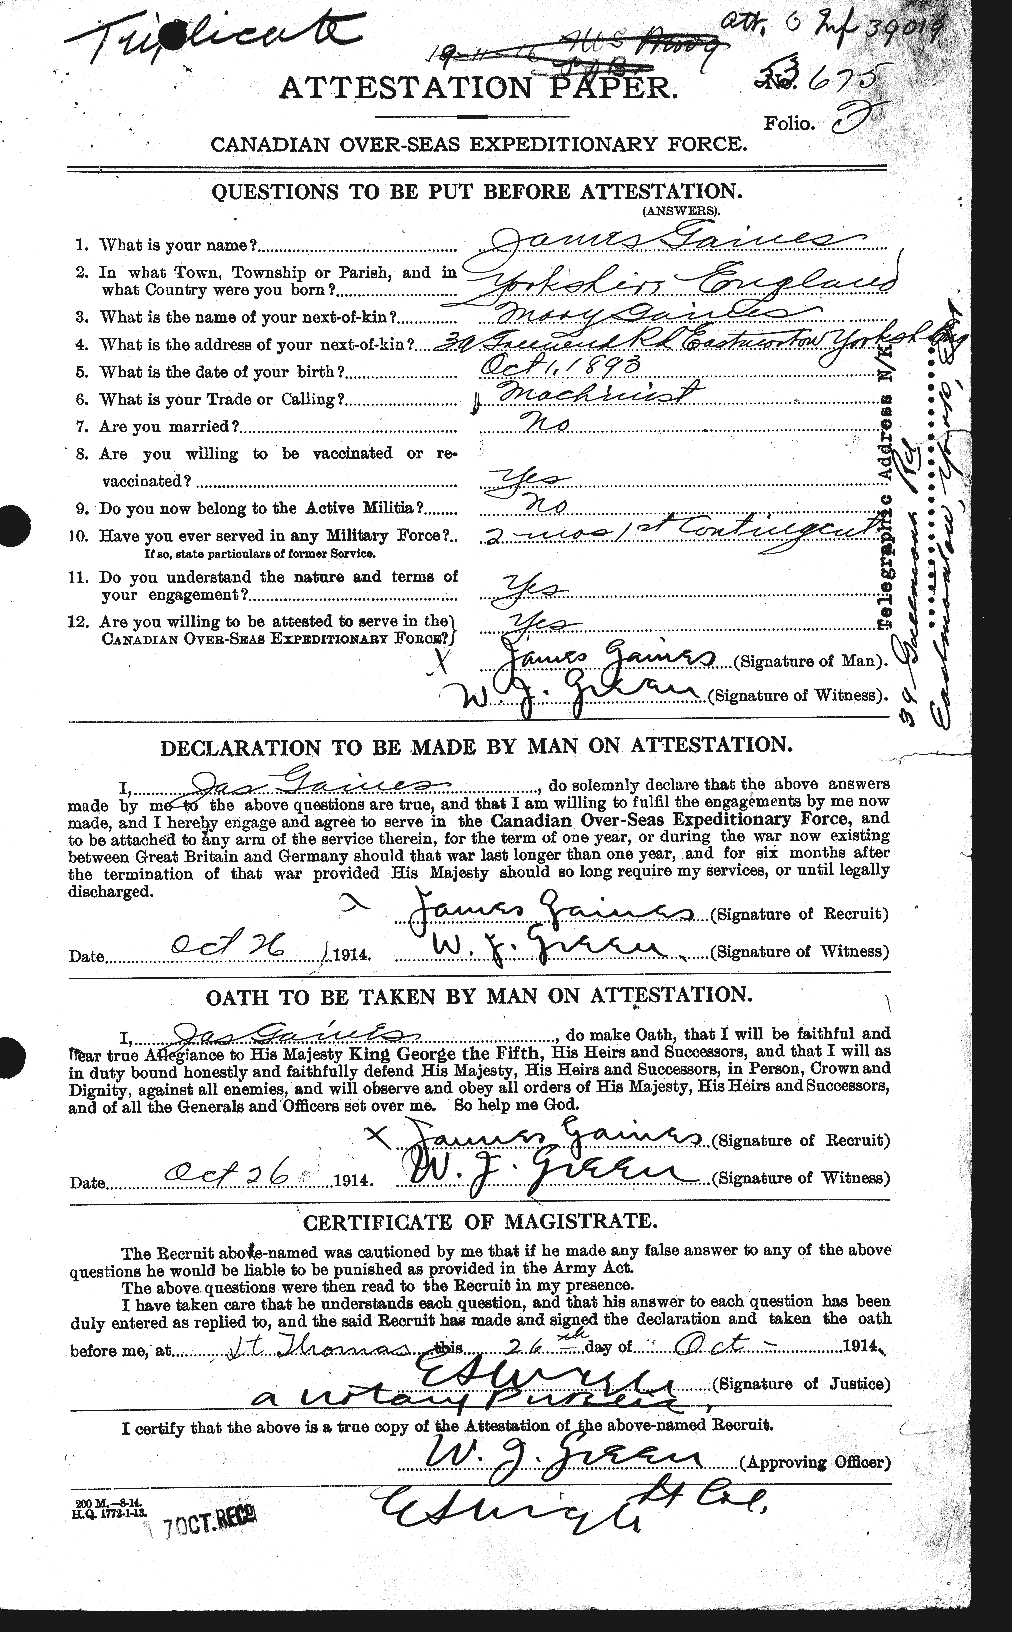 Triplicate
Att. 6 Inf 39019
ATTESTATION PAPER.
No. 53675
Folio. 2
CANADIAN OVER-SEAS EXPEDITIONARY FORCE.
QUESTIONS TO BE PUT BEFORE ATTESTATION.
(ANSWERS).
1. What is your name? James Gaines
2. In what Town, Township or Parish, and in
what Country were you born? Yorkshire England
3. What is the name of your next-of-kin? Mary Gaines
4. What is the address of your next-of-kin? Rd Yorksh Eng
5. What is the date of your birth? Oct 1, 1893
6. What is your Trade or Calling? Machinist
7. Are you married? No
8. Are you willing to be vaccinated or re-
vaccinated? Yes
9. Do you now belong to the Active Militia? No
10. Have you ever served in any Military Force? 2 mos 1st Contingent
If so, state particulars of former Service.
11. Do you understand the nature and terms of
your engagement? Yes
12. Are you willing to be attested to serve in the
CANADIAN OVER-SEAS EXPEDITIONARY FORCE? Yes
X James Gaines (Signature of Man).
W. J. Green (Signature of Witness).
Telegraphic Address N/K
DECLARATION TO BE MADE BY MAN ON ATTESTATION.
I, Jas Gaines, do solemnly declare that the above answers
made by me to the above questions are true, and that I am willing to fulfil the engagements by me now
made, and I hereby engage and agree to serve in the Canadian Over-Seas Expeditionary Force, and
to be attached to any arm of the service therein, for the term of one year, or during the war now existing
between Great Britain and Germany should that war last longer than one year, and for six months after
the termination of that war provided His Majesty should so long require my services, or until legally
discharged.
James Gaines (Signature of Recruit)
Date Oct 26 1914. W. J. Green (Signature of Witness)
OATH TO BE TAKEN BY MAN ON ATTESTATION.
I, Jas Gaines, do make Oath, that I will be faithful and
bear true Allegiance to His Majesty King George the Fifth, His Heirs and Successors, and that I will as
in duty bound honestly and faithfully defend His Majesty, His Heirs and Successors, in Person, Crown and
Dignity, against all enemies, and will observe and obey all orders of His Majesty, His Heirs and Successors,
and of all the Generals and Officers set over me. So help me God.
X James Gaines (Signature of Recruit)
Date Oct 26 1914. W. J. Green (Signature of Witness)
CERTIFICATE OF MAGISTRATE.
The Recruit above-named was cautioned by me that if he made any false answer to any of the above
questions he would be liable to be punished as provided in the Army Act.
The above questions were then read to the Recruit in my presence.
I have taken care that he understands each question, and that his answer to each question has been
duly entered as replied to, and the said Recruit has made and signed the declaration and taken the oath
before me, at St Thomas this 26th day of Oct 1914.
(Signature of Justice)
a notary Public,
I certify that the above is a true copy of the Attestation of the above-named Recruit.
W. J. Green (Approving Officer)
Lt Col.
200 M.—8-14.
H.Q. 1772-1-13.
7 OCT. REC'D